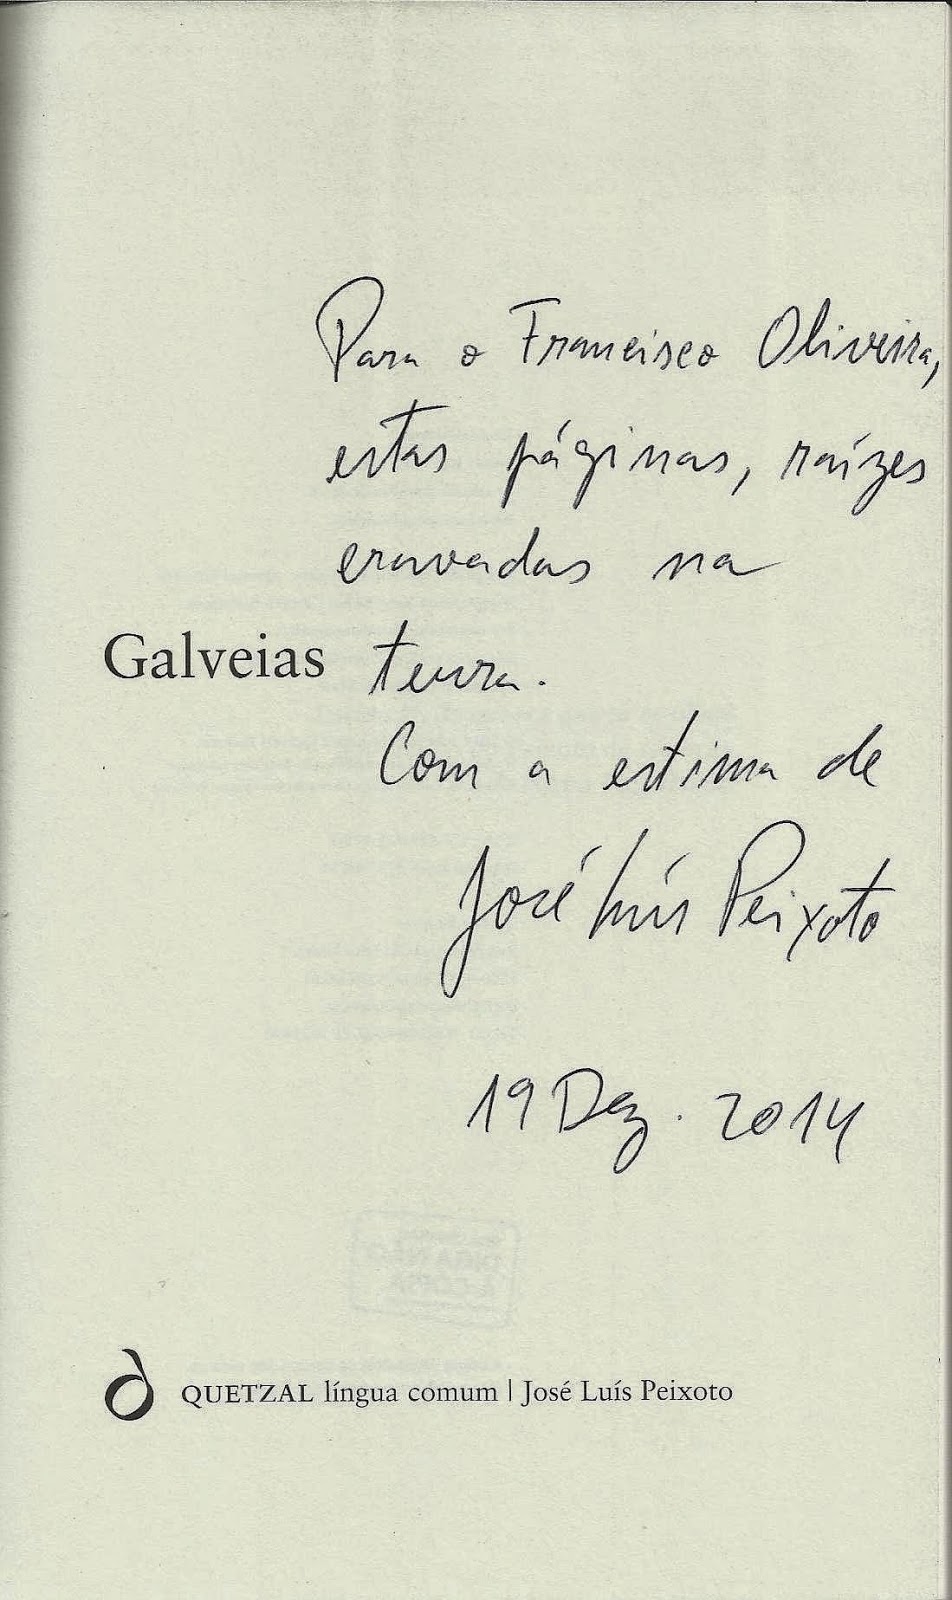 Para o Francisco Oliveira,
estas páginas, raízes
cravadas na
Galveias terra.
Com a estima de
José Luís Peixoto
19 Dez. 2014
QUETZAL língua comum | José Luís Peixoto